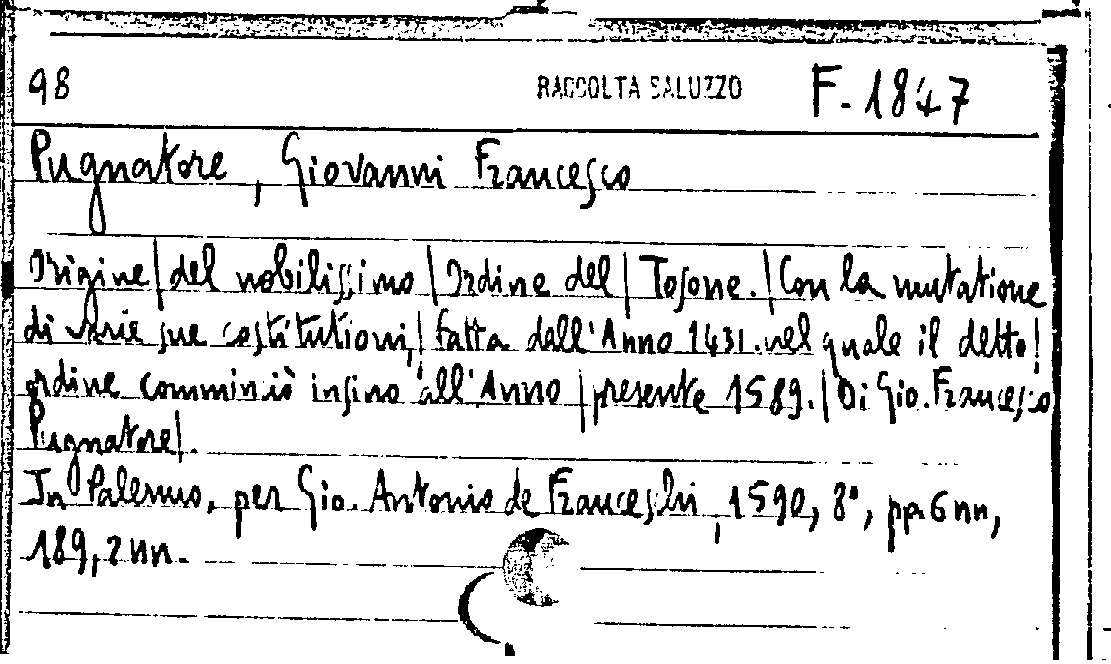 98 RACCOLTA SALUZZO F. 1847
Pugnatore, Giovanni Francesco
Origine | del nobilissimo | Ordine del | Tosone. | Con la mutatione
di varie sue costitutioni, | fatta dall'Anno 1431. nel quale il detto |
ordine comminciò insino all'Anno | presente 1589. | Di Gio. Francesco
Pugnatore |.
In Palermo, per Gio. Antonio de Franceschi, 1590, 8°, pp. 6 nn,
189, 2 nn.